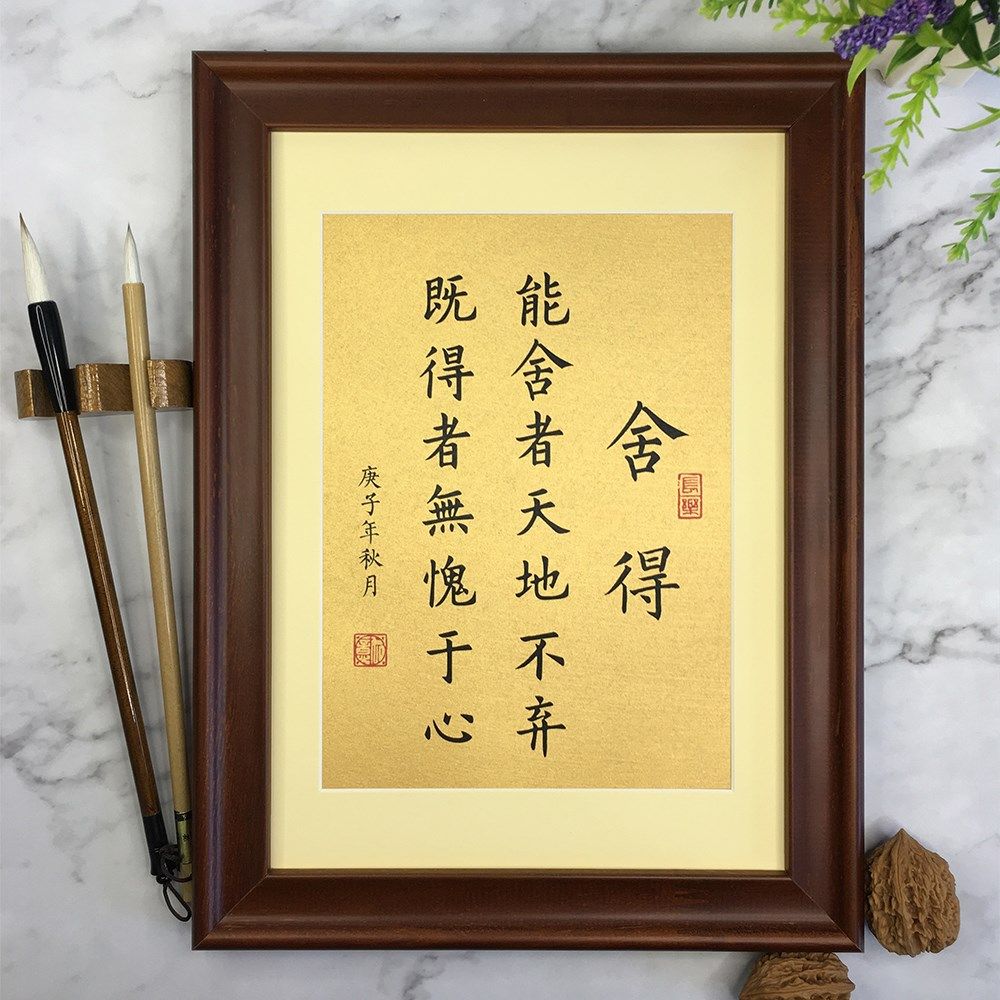 舍得
長樂
能舍者天地不弃
既得者無愧于心
庚子年秋月